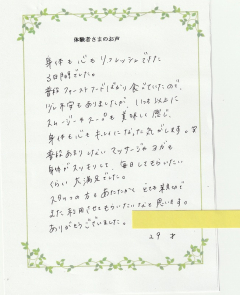 体験者さまのお声
身体も心もリフレッシュできた
3日間でした。
普段ファーストフードばかり食べていたので、
少し不安もありましたが、いつも以上に
スムージーやスープも美味しく感じ、
身体も心もキレイになった気がします。
普段あまりしないマッサージやヨガも
身体がスッキリして、毎日してもらいたい
くらい大満足でした。
スタッフの方もあたたかく とても親切で
また利用させてもらいたいなと思います。
ありがとうございました。
29才